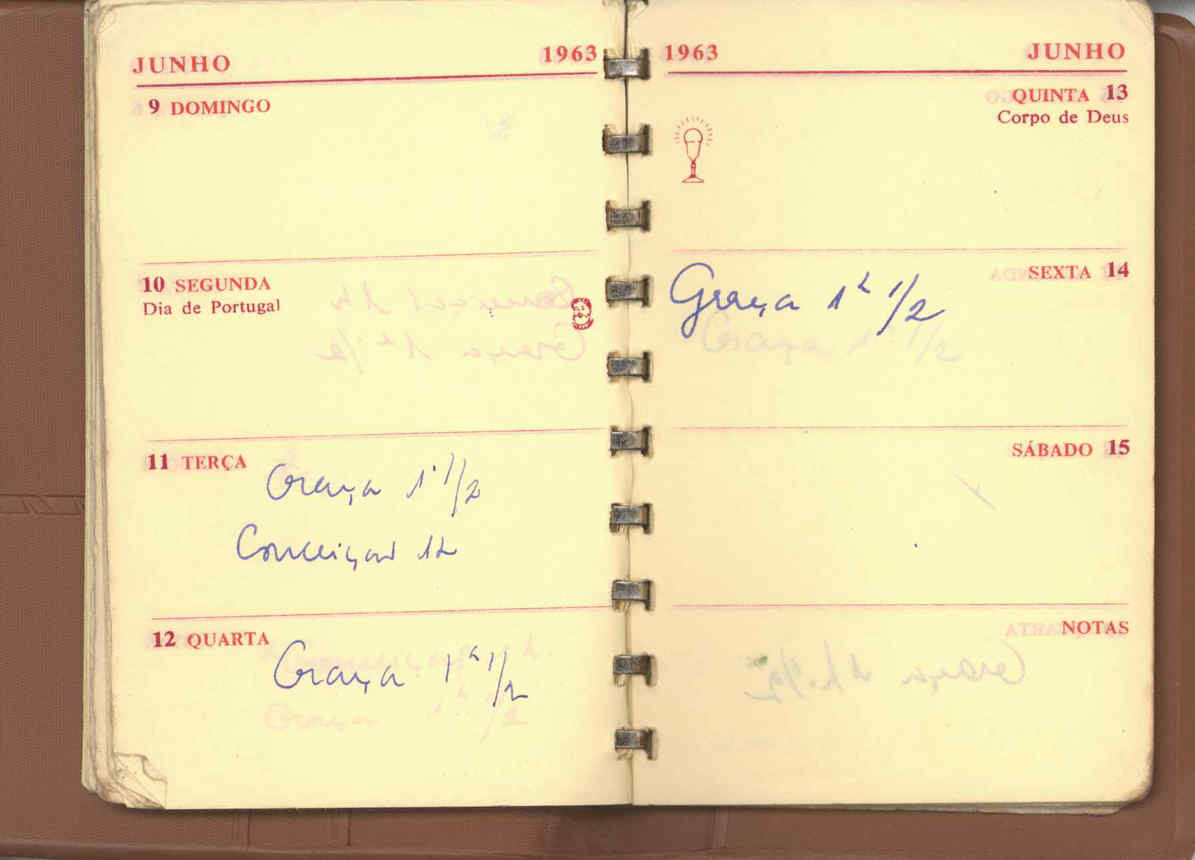 JUNHO 1963
9 DOMINGO
10 SEGUNDA
Dia de Portugal
11 TERÇA
Graça 1h 1/2
Conceição 1h
12 QUARTA
Graça 1h 1/2
1963 JUNHO
QUINTA 13
Corpo de Deus
SEXTA 14
Graça 1h 1/2
SÁBADO 15
NOTAS